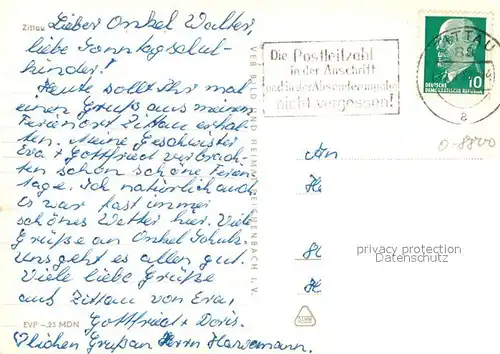 Zittau
Lieber Onkel Walter,
liebe Sonntagsschul-
kinder!
Heute sollt ihr mal
einen Gruß aus meinem
Ferienort Zittau erhal-
ten. Meine Geschwister
Eva + Gottfried verbrach-
ten schon schöne Ferien-
tage. Ich natürlich auch.
Es war fast immer
schönes Wetter hier. Viele
Grüße an Onkel Schulz.
Uns geht es allen gut.
Viele liebe Grüße
aus Zittau von Eva,
Gottfried + Doris.
lichen Gruß an Herrn Hansemann.
EVP -.25 MDN
VEB BILD UND HEIMAT REICHENBACH I. V.
Die Postleitzahl
in der Anschrift
und in der Absenderangabe
nicht vergessen!
ZITTAU
a
10
DEUTSCHE
DEMOKRATISCHE REPUBLIK
0-8800
An
H
privacy protection
Datenschutz
H